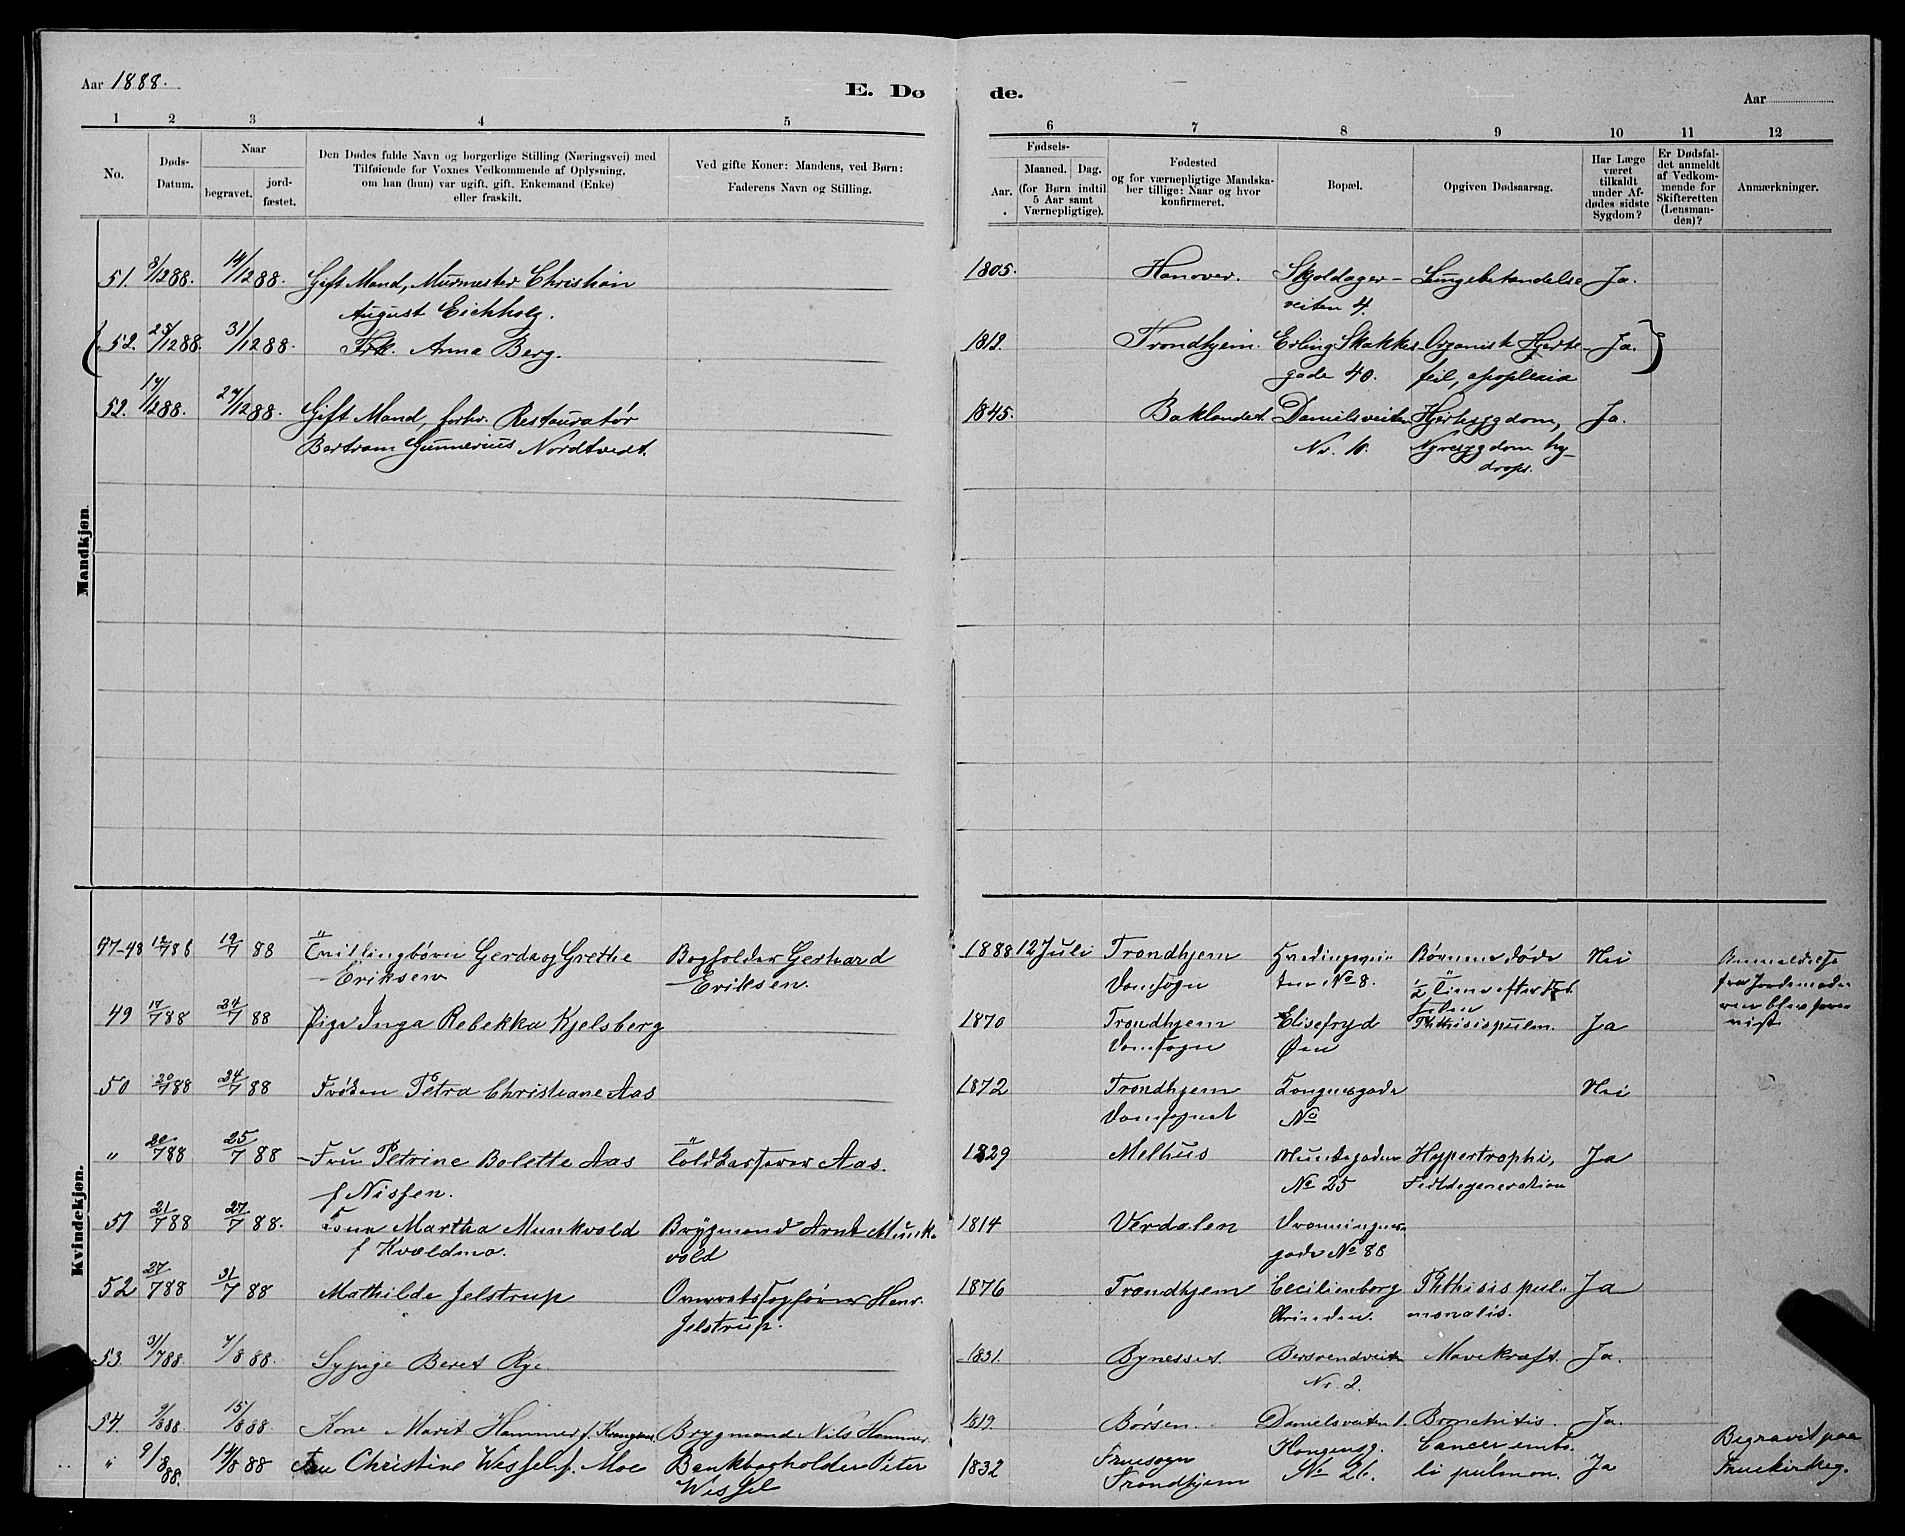 Aar 1888.
E. Dø de.
Aar
1 2 3 4 5 6 7 8 9 10 11 12
No.
Døds-
Datum.
Naar
begravet.
jord-
fæstet.
Den Dødes fulde Navn og borgerlige Stilling (Næringsvei) med
Tilføiende for Voxnes Vedkommende af Oplysning,
om han (hun) var ugift, gift, Enkemand (Enke)
eller fraskilt.
Ved gifte Koner: Mandens, ved Børn:
Faderens Navn og Stilling.
Fødsels-
Aar.
Maaned. Dag.
(for Børn indtil
5 Aar samt
Værnepligtige).
Fødested
og for værnepligtige Mandska-
ber tillige: Naar og hvor
konfirmeret.
Bopæl.
Opgiven Dødsaarsag.
Har Læge
været
tilkaldt
under Af-
dødes sidste
Sygdom?
Er Dødsfal-
det anmeldt
af Vedkom-
mende for
Skifteretten
(Lensman-
den)?
Anmærkninger.
Mandkjøn.
51. 8/12 88. 14/12 88. Gift Mand, Murmester Christian 1805. Hanover. Skjoldager- Lungebetændelse Ja.
August Eichholz. veiten 4.
(52. 25/12 88. 31/12 88. Frk. Anna Berg. 1812. Trondhjem. Erling Skakkes Organisk Hjerte- Ja.)
gade 40. feil, apoplexia
52. 17/12 88. 27/12 88. Gift Mand, forhv. Restauratør 1845. Baklandet. Danielsveiten Hjertesygdom, Ja.
Bertram Gunnerius Nordtvedt. Nr. 10. Nyresygdom hy-
drops.
Kvindekjøn.
47-48 12/7 88 19/7 88 Tvillingbørn Gerda og Grethe Bogholder Gerhard 1888 12 Juli Trondhjem Børnene døde Nei
Eriksen Eriksen. Domsogn ten No 8. 1/2 Time efter Fød-
selen
49 17/7 88 24/7 88 Pige Inga Rebekka Kjelsberg 1870 Trondhjem Elisefryd Phthisis pulm. Ja
Domsogn Øen
50 20/7 88 24/7 88 Frøken Petra Christiane Aas 1872 Trondhjem Kongensgade Nei
Domsognet No
" 20/7 88 25/7 88 Fru Petrine Bolette Aas Toldkasserer Aas. 1829 Melhus Munkegaden Hypertrophi, Ja
f Nissen. No 25 Fedtdegeneration
51 21/7 88 27/7 88. Martha Munkvold Brygmand Arnt Munk- 1814 Verdalen Dronningens
f Kvældmo. vold gade No 88
52 27/7 88 31/7 88 Mathilde Jelstrup Overretssagfører Henr. 1876 Trondhjem Cecilienborg Phthisis pul- Ja
Jelstrup. Strinden. monalis.
53 31/7 88. 7/8 88. Sypige Beret Rye. 1831. Bynesset. Bersvendveiten Mavekræft. Ja.
Nr. 2.
54. 9/8 88 15/8 88. Kone Marit Hammer f. Brygmand Nils Hammer. 1819. Børsen. Danielsveiten 1. Bronchitis. Ja.
" 9/8 88. 14/8 88 Fru Christine Wessel f. Moe Bankbogholder Peter 1832 Fruesogn Kongensg. Cancer Ja Begravet paa
Wessel Trondhjem No 26. pulmon. Fruekirkeg.